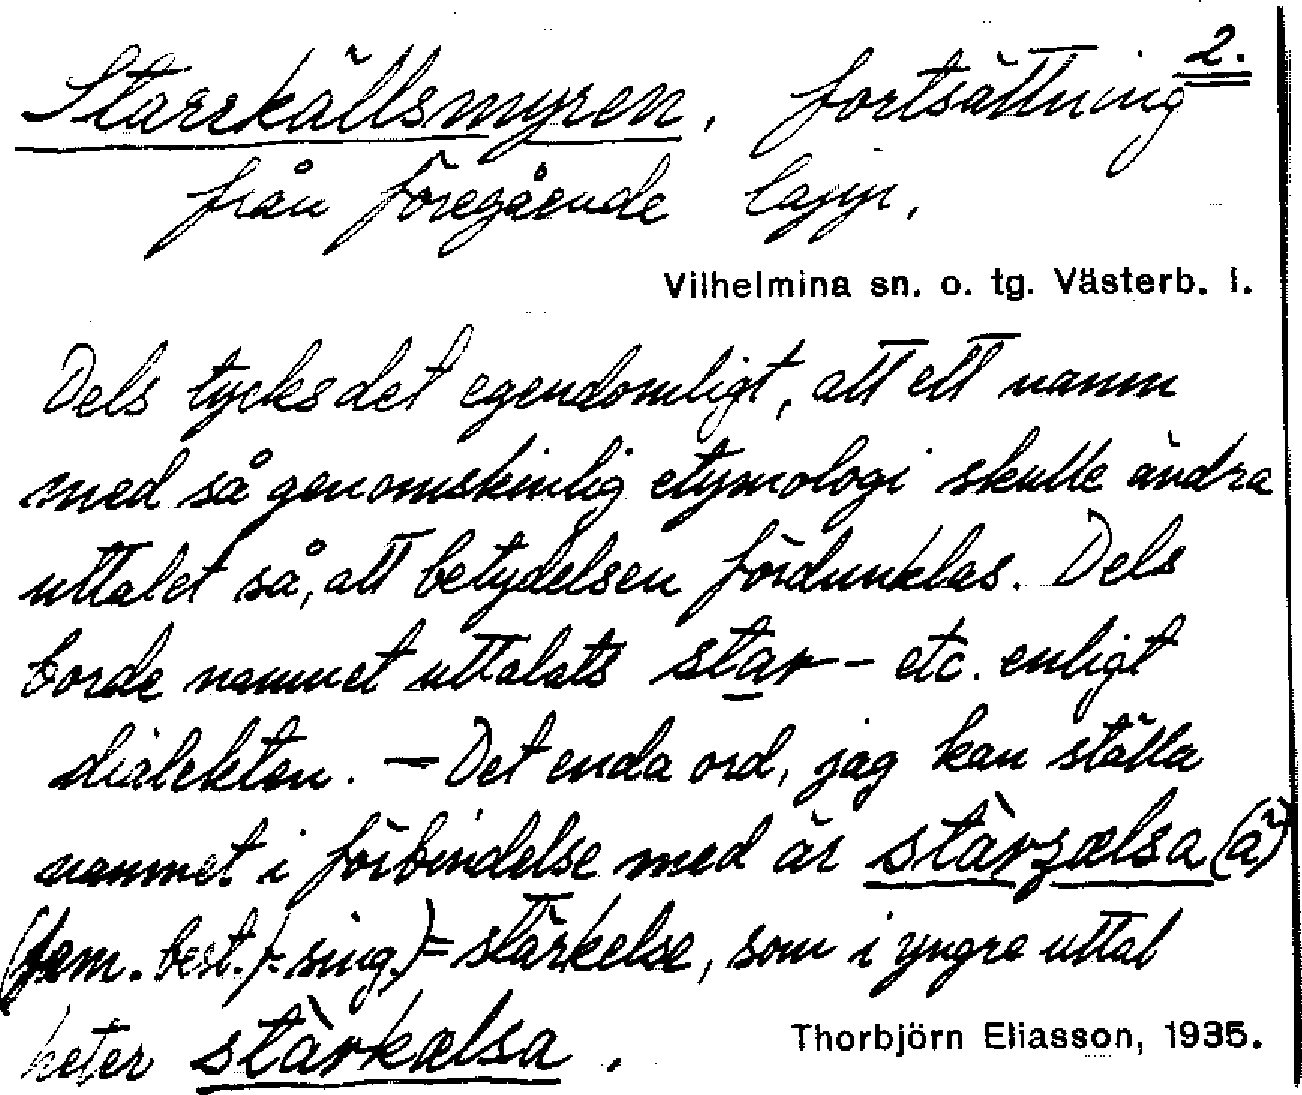 Starrkällsmyren, fortsättning 2.
från föregående lapp.
Vilhelmina sn. o. tg. Västerb. l.
Dels tycks det egendomligt, att ett namn
med så genomskinlig etymologi skulle ändra
uttalet så, att betydelsen fördunklas. Dels
borde namnet uttalats star- etc. enligt
dialekten. – Det enda ord, jag kan ställa
namnet i förbindelse med är stàrʒælsa (ä)
(fem. best. f. sing.) = stärkelse, som i yngre uttal
heter stàrkælsa.
Thorbjörn Eliasson, 1935.